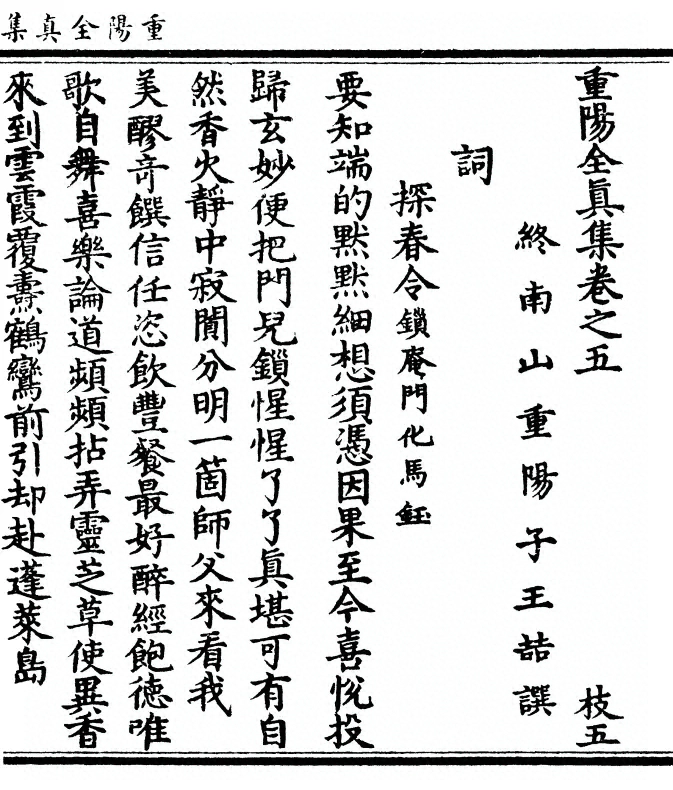 重陽全真集
重陽全眞集卷之五 枝五
終南山重陽子王嚞譔
詞
探春令鎖庵門化馬鈺
要知端的默默細想須憑因果至今喜悅投
歸玄妙便把門兒鎖惺惺了了眞堪可有自
然香火靜中寂闃分明一箇師父來看我
美醪竒饌信任恣飲豐餐最好醉經飽德唯
歌自舞喜樂論道頻頻拈弄靈芝草使異香
來到雲霞覆燾鶴鸞前引却赴蓬萊島